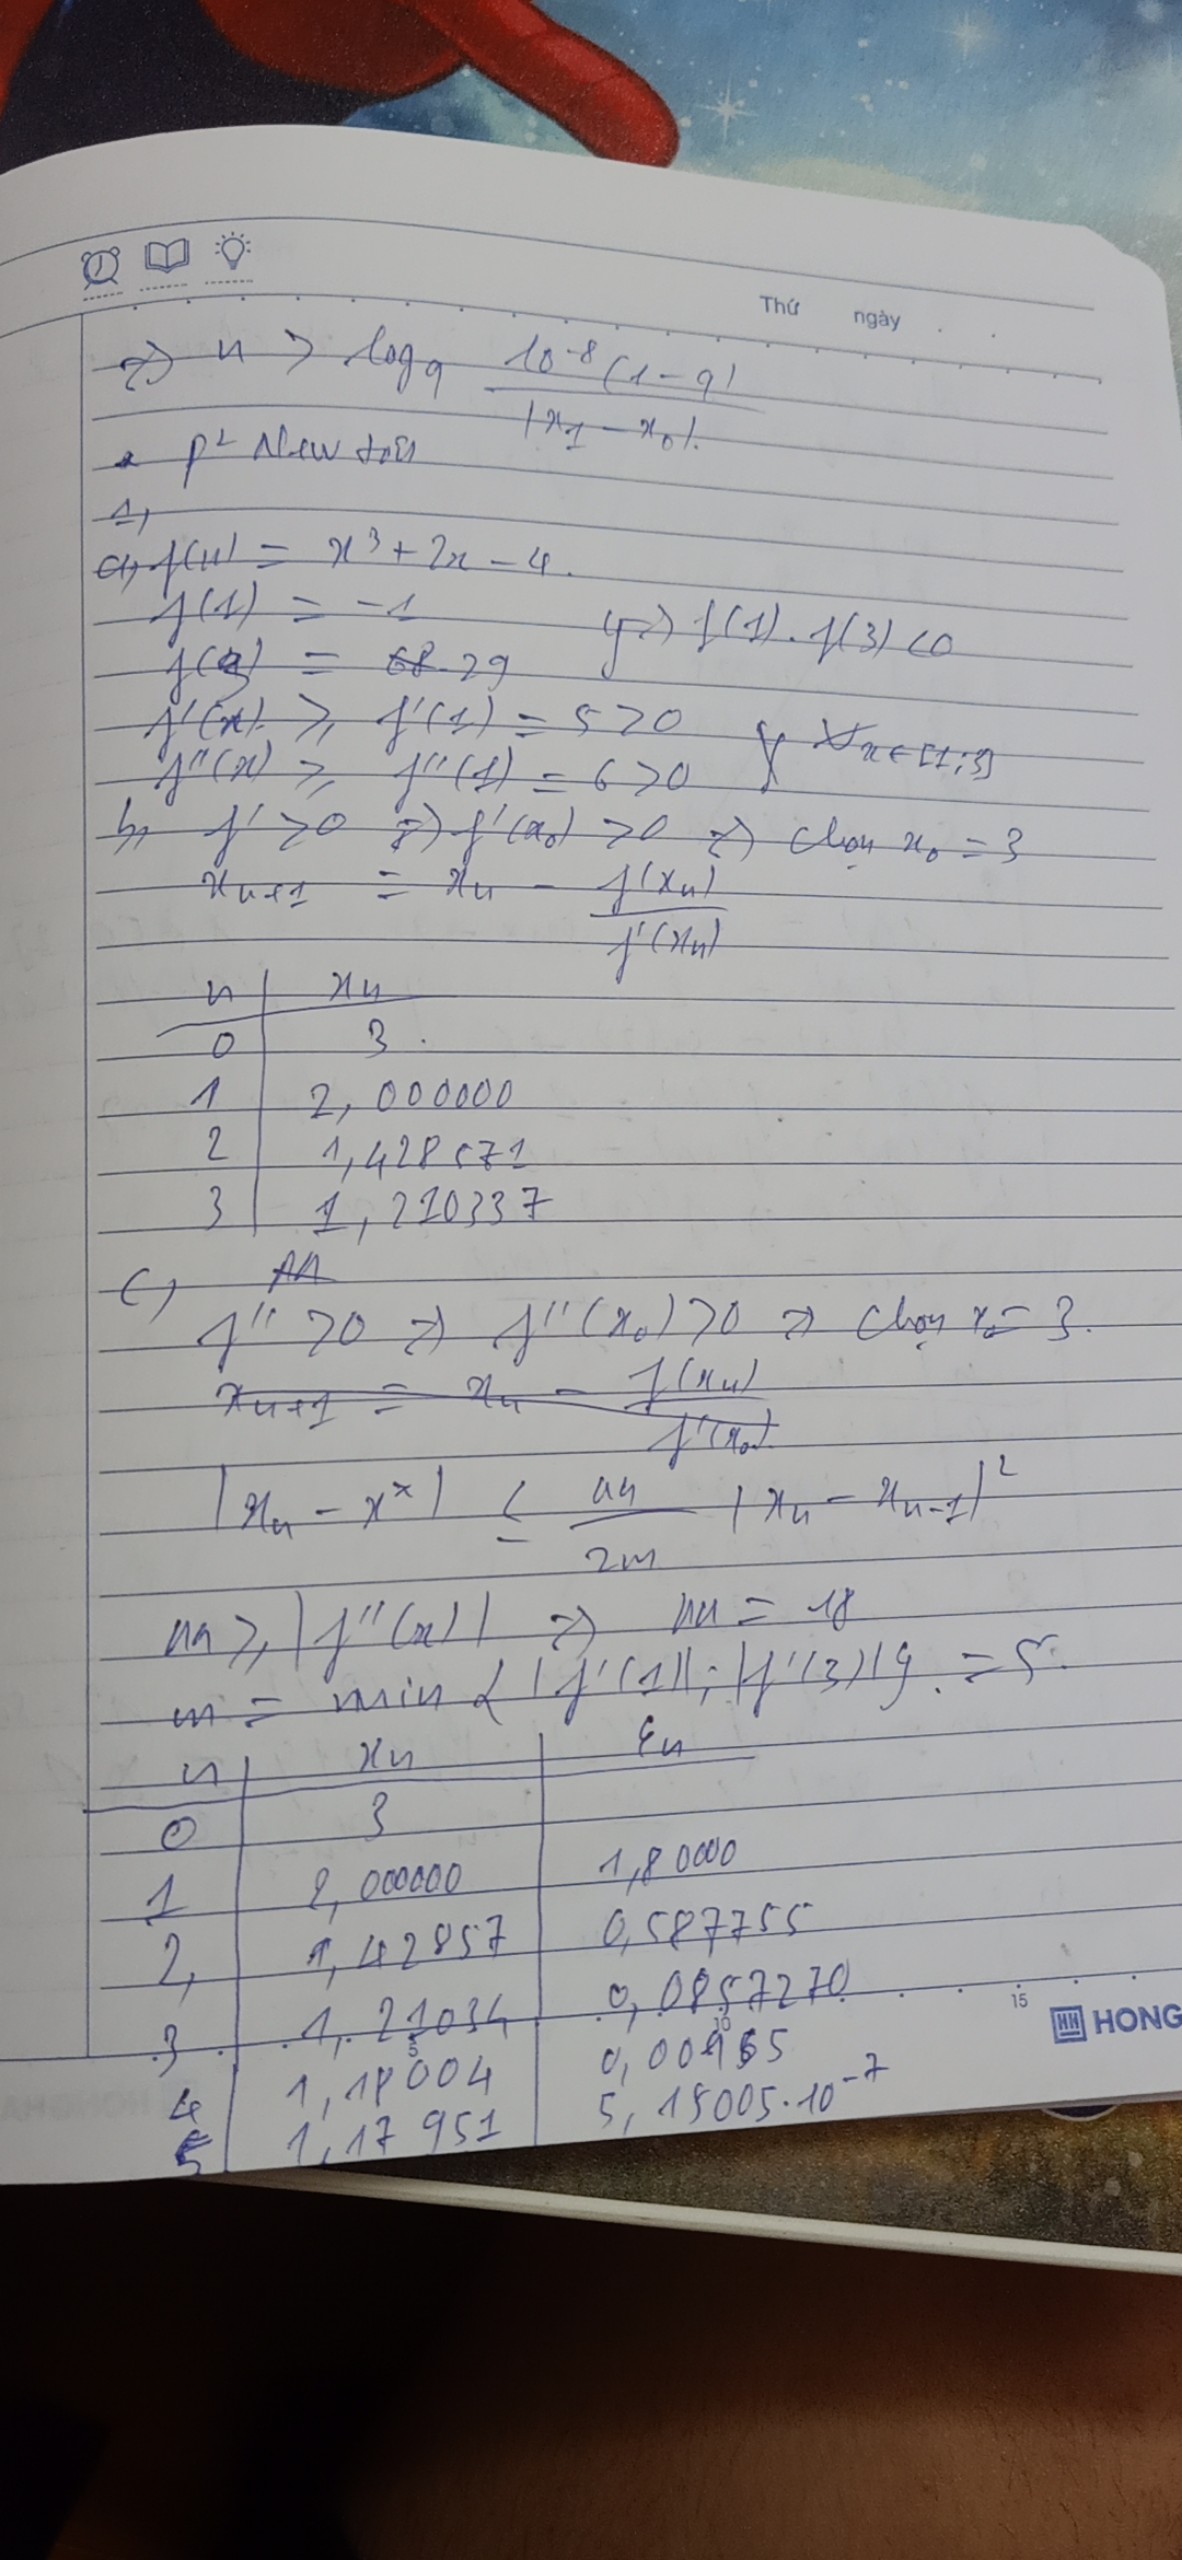 Thứ ngày
=> n > log q 10⁻⁸(1-q) / |x₁ - x₀|
* P² Newton
1,
a, f(x) = x³ + 2x - 4.
f(1) = -1 } => f(1).f(3) < 0
f(3) = 29
f'(x) ≥ f'(1) = 5 > 0 } ∀x∈[1;3]
f''(x) ≥ f''(1) = 6 > 0
b, f' > 0 => f'(x₀) > 0 => chọn x₀ = 3
xₙ₊₁ = xₙ - f(xₙ) / f'(xₙ)
n | xₙ
0 | 3
1 | 2,000000
2 | 1,428571
3 | 1,210337
c,
f'' > 0 => f''(x₀) > 0 => chọn x₀ = 3.
xₙ₊₁ = xₙ - f(xₙ) / f'(xₙ)
|xₙ - x*| ≤ M / 2m |xₙ - xₙ₋₁|²
M ≥ |f''(x)| => M = 18
m = min {|f'(1)|; |f'(3)|} = 5
n | xₙ | εₙ
0 | 3
1 | 2,000000 | 1,80000
2, | 1,42857 | 0,587755
3 | 1,21034 | 0,0857270
4 | 1,18004
5 | 1,17951 | 5,15005.10⁻⁷
5 10 15
HONG